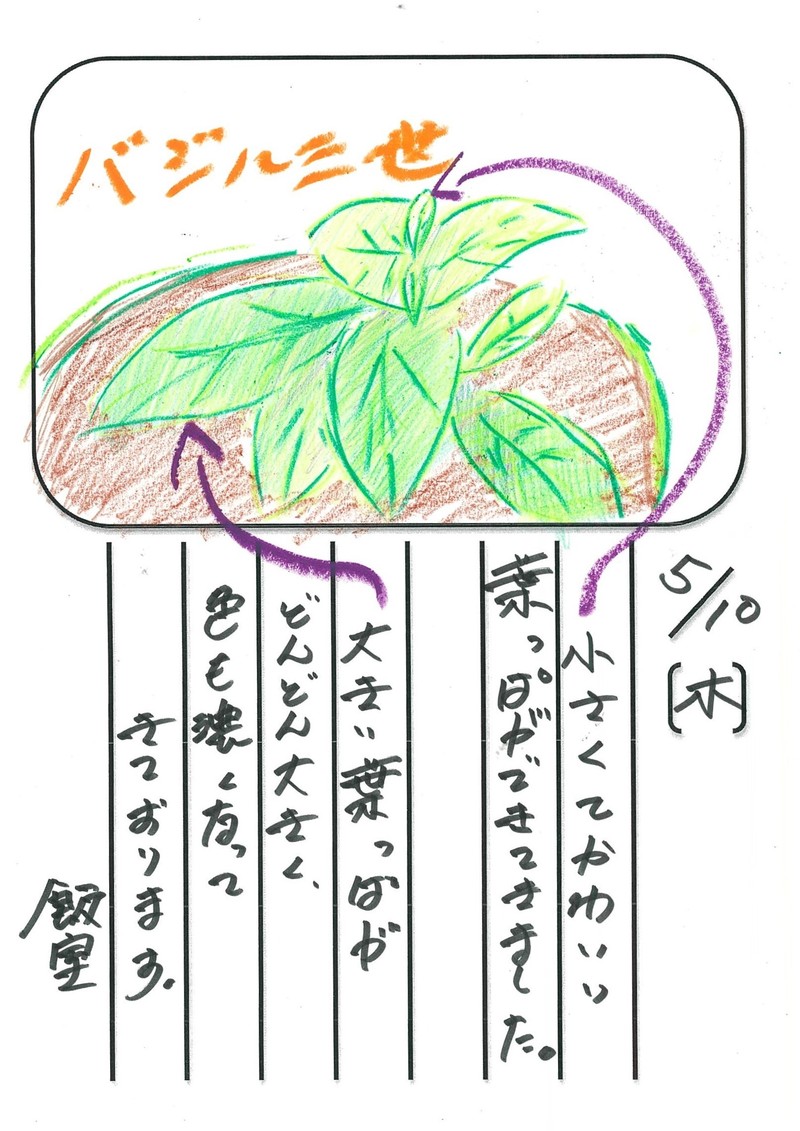 バジル三世
5/10 [木]
小さくてかわいい
葉っぱができてきました。
大きい葉っぱが
どんどん大きく、
色も濃くなって
きております。
飯室